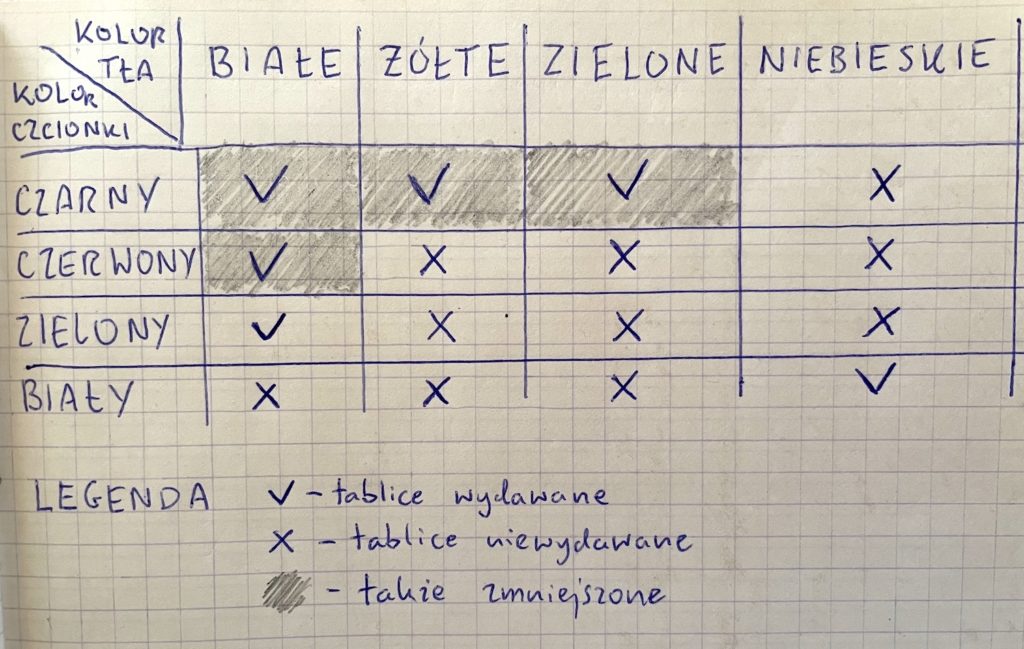 KOLOR TŁA
KOLOR CZCIONKI
BIAŁE ŻÓŁTE ZIELONE NIEBIESKIE
CZARNY ✓ ✓ ✓ X
CZERWONY ✓ X X X
ZIELONY ✓ X X X
BIAŁY X X X ✓
LEGENDA ✓ - tablice wydawane
X - tablice niewydawane
- takie zmniejszone